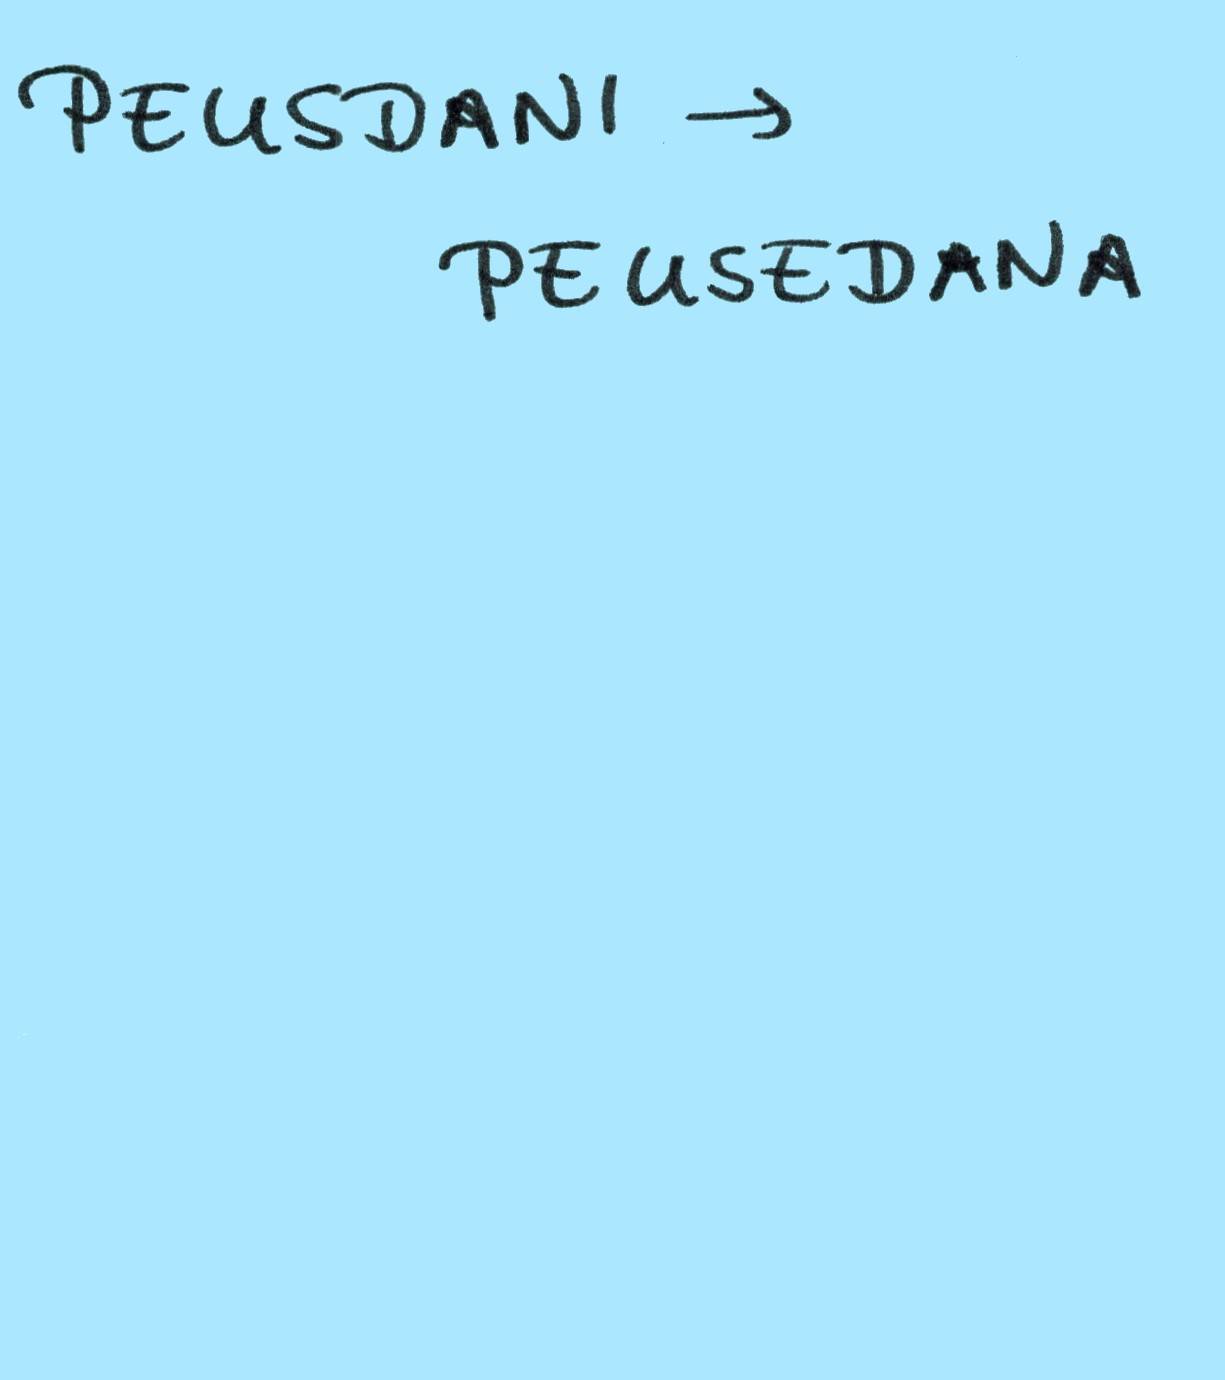 PEUSDANI →
PEUSEDANA